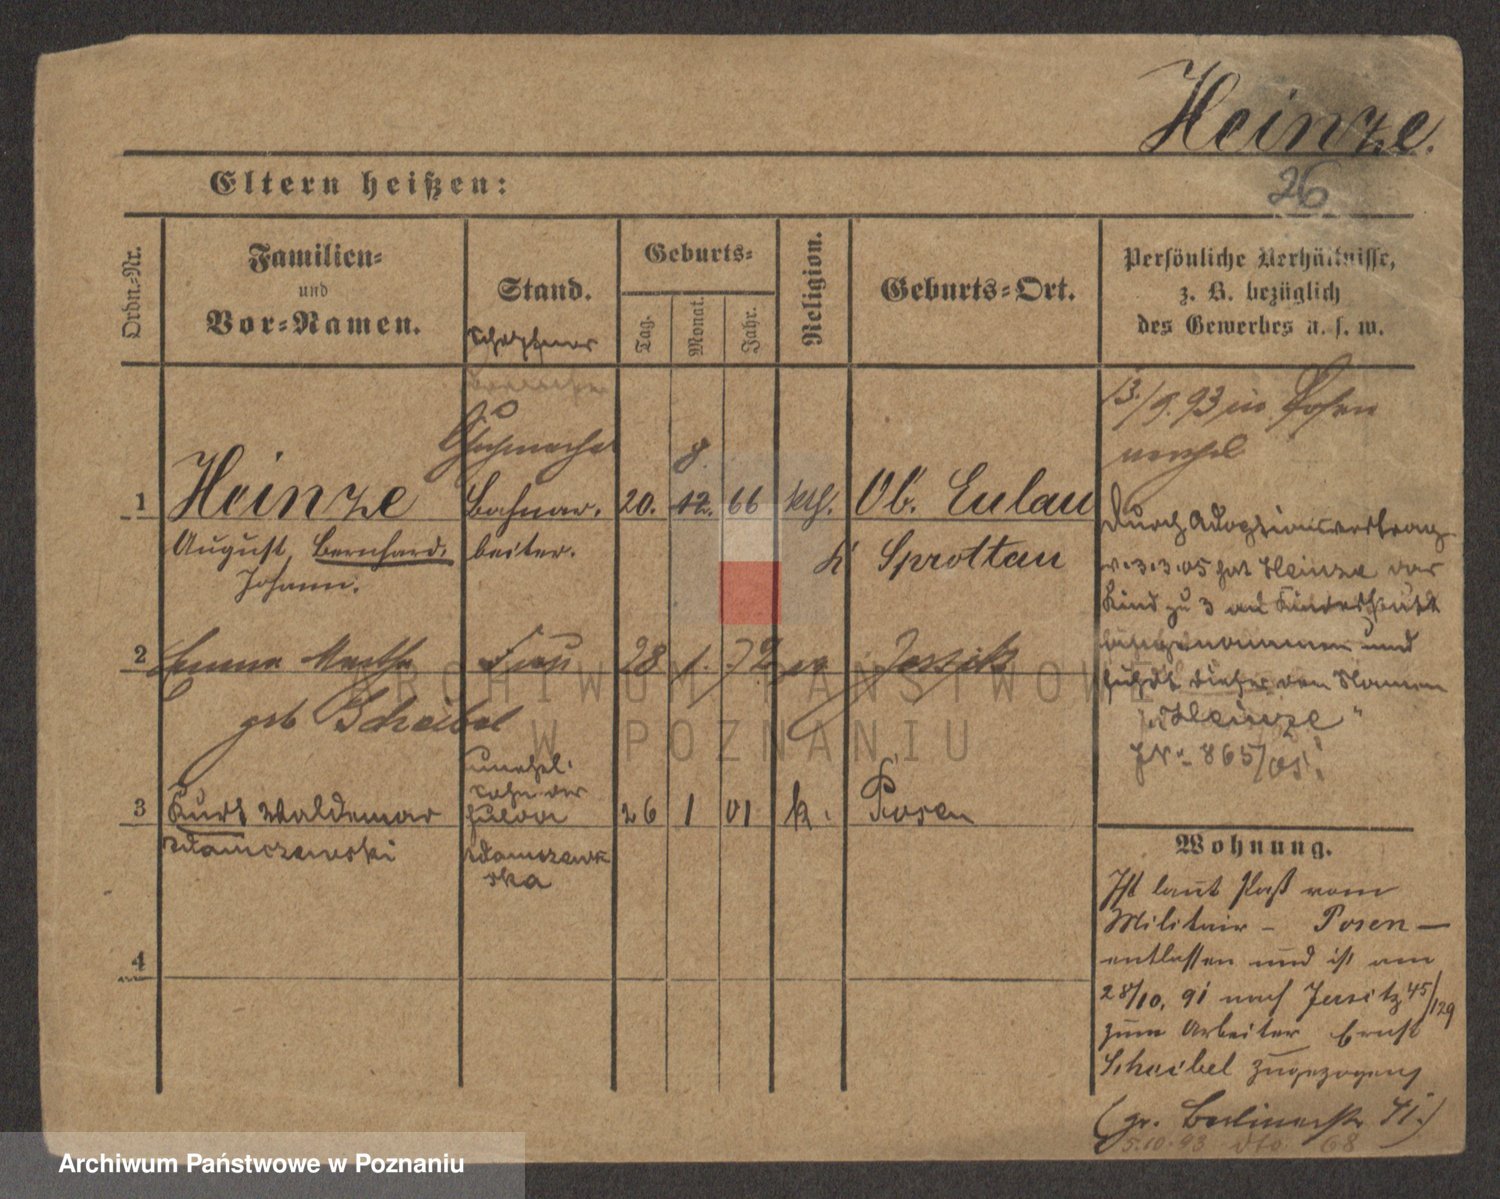 Heinze.
26
Eltern heißen:
Ordn.-Nr.
Familien-
und
Vor-Namen.
Stand.
Geburts-
Tag.
Monat.
Jahr.
Religion.
Geburts-Ort.
Persönliche Verhältnisse,
z. B. bezüglich
des Gewerbes u. s. w.
13./9. 93 in Posen
1
Heinze
August, Bernhard.
Johann.
Bahnar-
beiter.
20. 12. 66
8.
kth.
Ob. Eulau
k Sprottau
Durch Adoptionsvertrag
v. 3.3.05 hat Heinze das
Kind zu 3 an Kindesstatt
angenommen und
führt dieses den Namen
"Heinze"
J№ 865/05.
2
Emma Martha
geb Scheibel
Frau
28 1. 72
Jersitz
3
Kurt Waldemar
Adamczewski
unehel.
Sohn der
Adamczewska
26 1 01
k.
Posen
4
Wohnung.
Ist laut Paß vom
Militair - Posen -
entlassen und ist am
28/10. 91 nach Jersitz 45/129
zum Arbeiter Ernst
Scheibel zugezogen
(gr. Berlinerstr 41.)
5.10.93 dto 68
ARCHIWUM PAŃSTWOWE
W POZNANIU
Archiwum Państwowe w Poznaniu